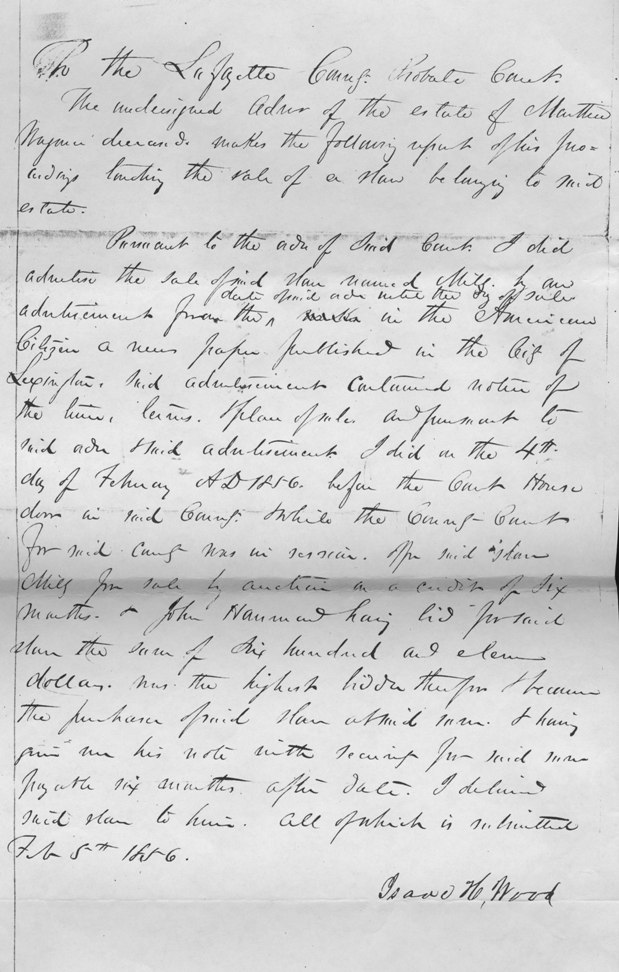 To the Lafayette County Probate Court.
The undersigned Admr of the estate of Matthew
deceased. makes the following report of his pro=
ceedings touching the sale of a slave belonging to said
estate.
Pursuant to the order of said Court I did
advertise the sale of said slave named Milly by an
date of said order until the day of sale
advertisement from the ^ in the American
Citizen a news paper published in the City of
Lexington. Said advertisement contained notice of
the time, terms. & place of sale. and pursuant to
said order & said advertisement I did on the 4th
day of February AD 1856. before the Court House
door in said County. & while the County Court
for said county was in session. offer said slave
Milly for sale by auction on a credit of six
months. & John Hammond having bid for said
slave the sum of Six hundred and eleven
dollars. was the highest bidder therefor & became
the purchaser of said slave at said sum. & having
given me his note with security for said sum
payable six months after date. I delivered
said slave to him. all of which is submitted
Feb 5th 1856.
Isaac H, Wood